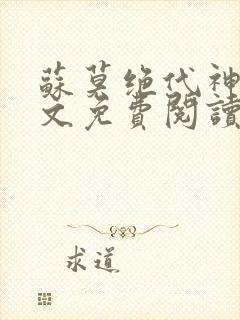 蘇莫绝代神
文免費閱讀
求道